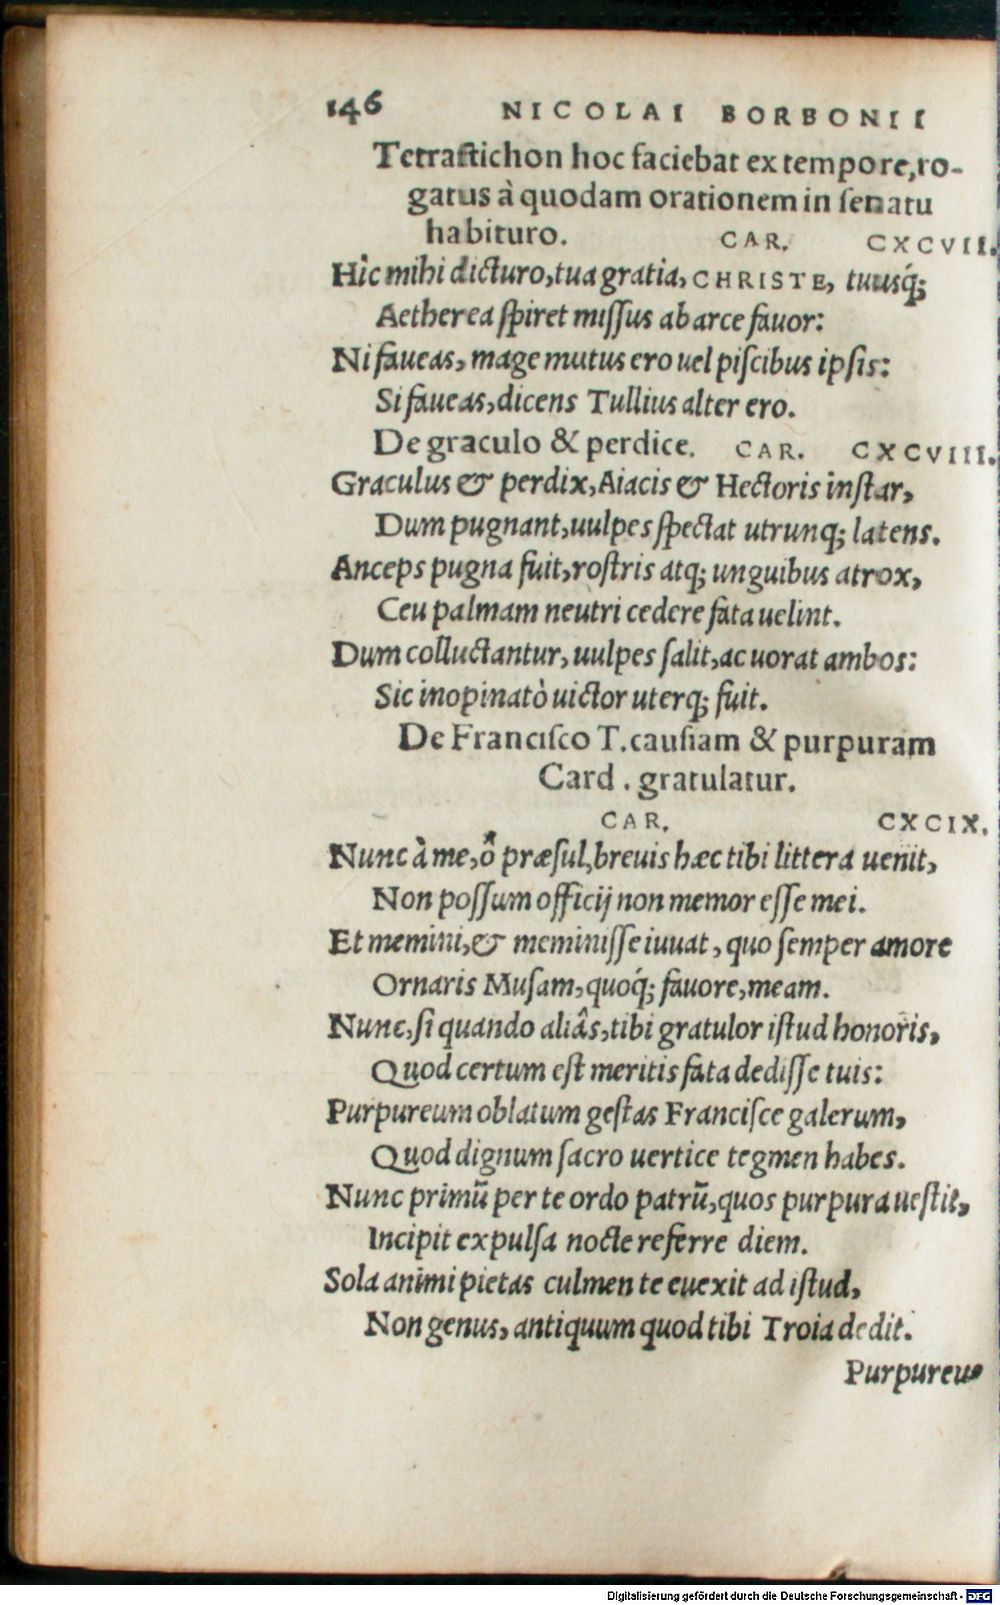 146 NICOLAI BORBONII
Tetrastichon hoc faciebat ex tempore, ro-
gatus à quodam orationem in senatu
habituro. CAR. CXCVII.
Hîc mihi dicturo, tua gratia, CHRISTE, tuusq́;
Aetherea spiret missus ab arce fauor:
Ni faueas, mage mutus ero uel piscibus ipsis:
Si faueas, dicens Tullius alter ero.
De graculo & perdice. CAR. CXCVIII.
Graculus & perdix, Aiacis & Hectoris instar,
Dum pugnant, uulpes spectat utrunq; latens.
Anceps pugna fuit, rostris atq; unguibus atrox,
Ceu palmam neutri cedere fata uelint.
Dum colluctantur, uulpes salit, ac uorat ambos:
Sic inopinatò uictor uterq; fuit.
De Francisco T. causiam & purpuram
Card. gratulatur.
CAR. CXCIX.
Nunc à me, ô præsul, breuis hæc tibi littera uenit,
Non possum officij non memor esse mei.
Et memini, & meminisse iuuat, quo semper amore
Ornaris Musam, quoq́; fauore, meam.
Nunc, si quando aliâs, tibi gratulor istud honoris,
Quod certum est meritis fata dedisse tuis:
Purpureum oblatum gestas Francisce galerum,
Quod dignum sacro uertice tegmen habes.
Nunc primũ per te ordo patrũ, quos purpura uestit,
Incipit expulsa nocte referre diem.
Sola animi pietas culmen te euexit ad istud,
Non genus, antiquum quod tibi Troia dedit.
Purpureus
Digitalisierung gefördert durch die Deutsche Forschungsgemeinschaft - DFG